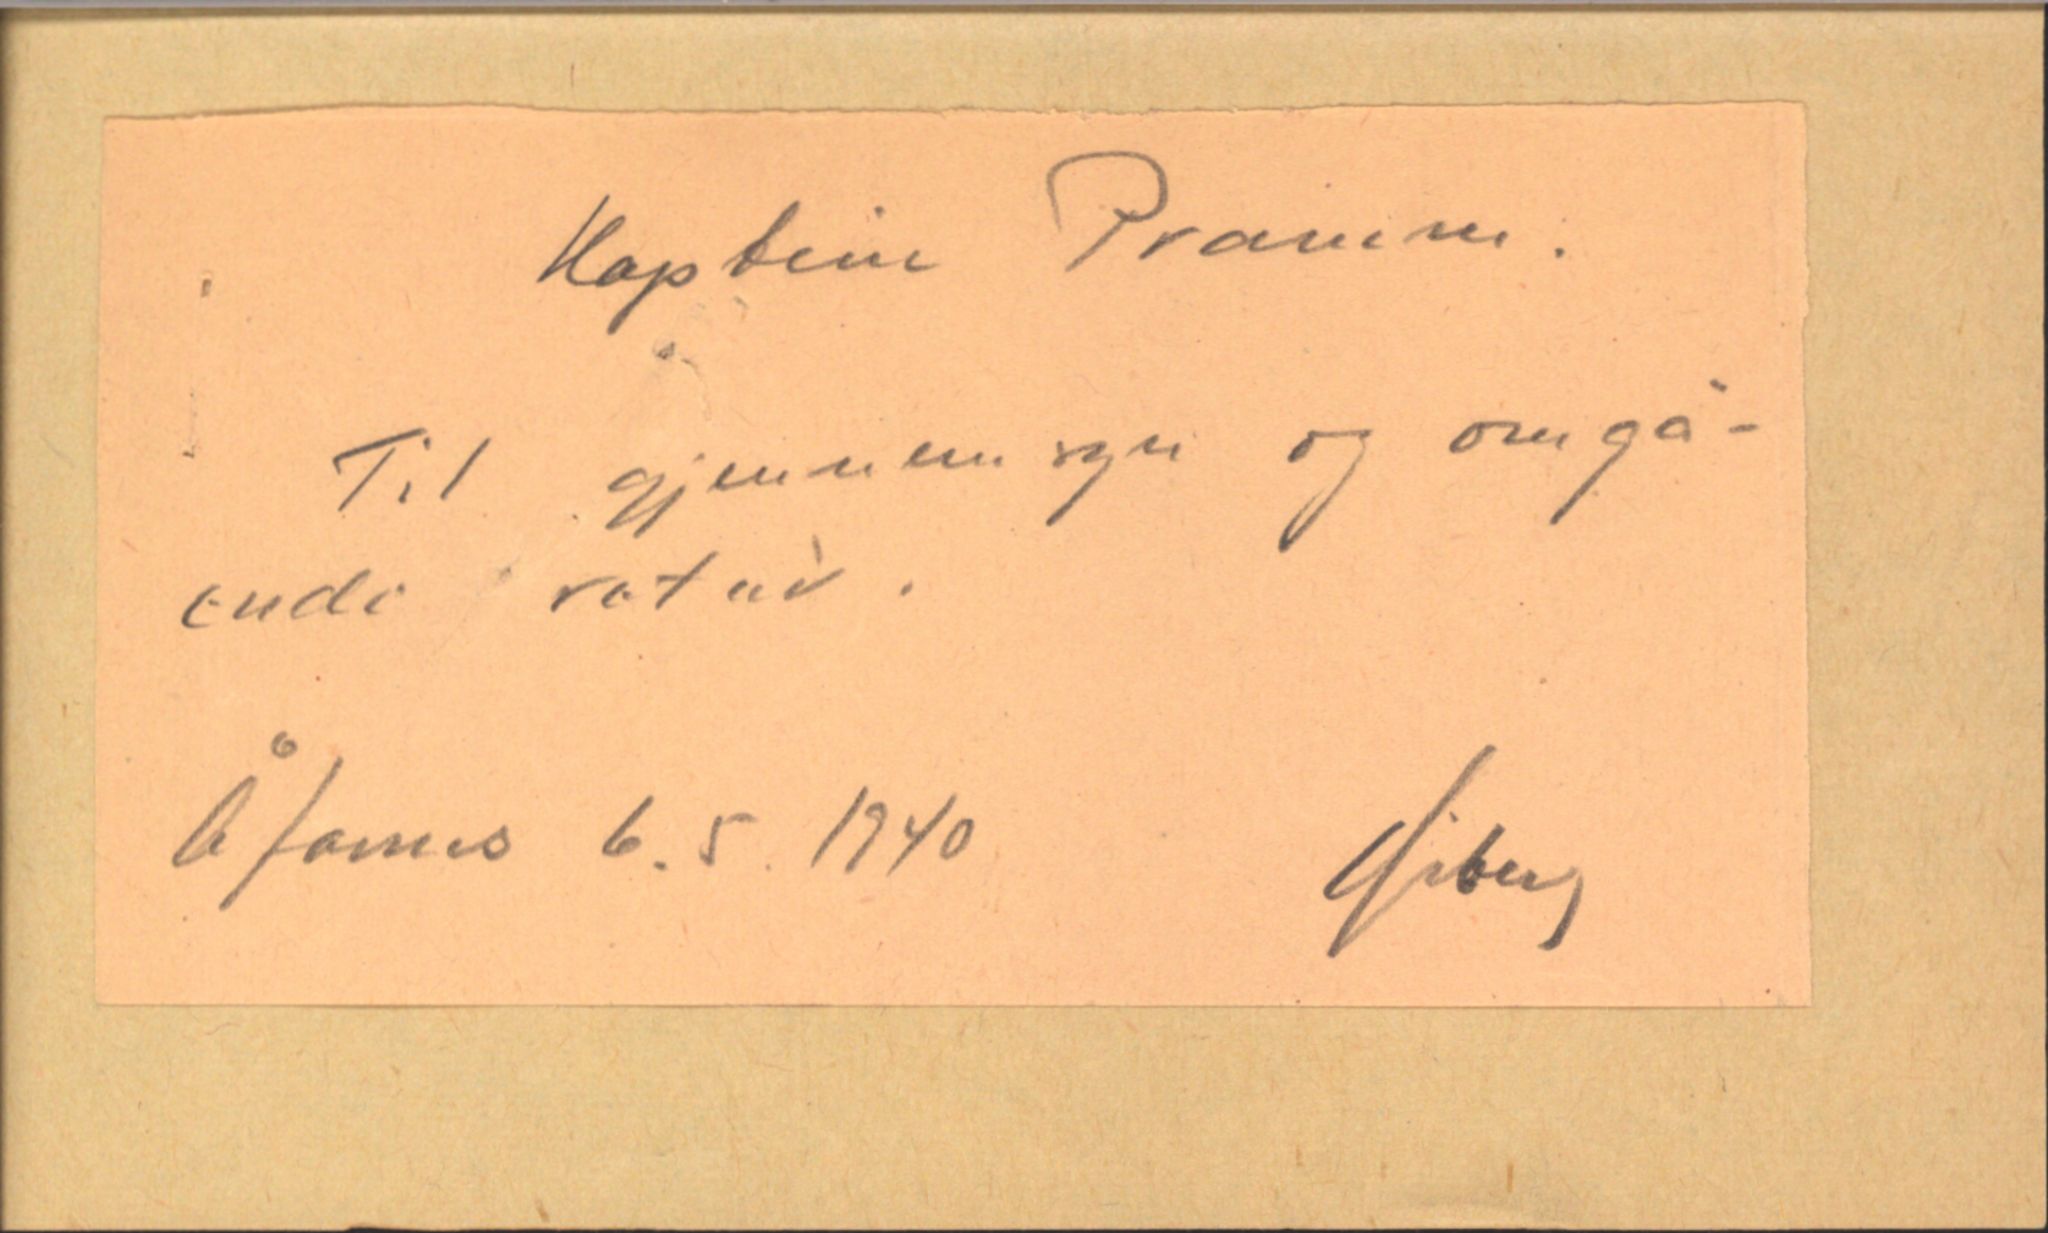 Kaptein Pramm.
Til gjennemsyn og omgå-
ende retur.
Åfarnes 6.5.1940
Ørberg